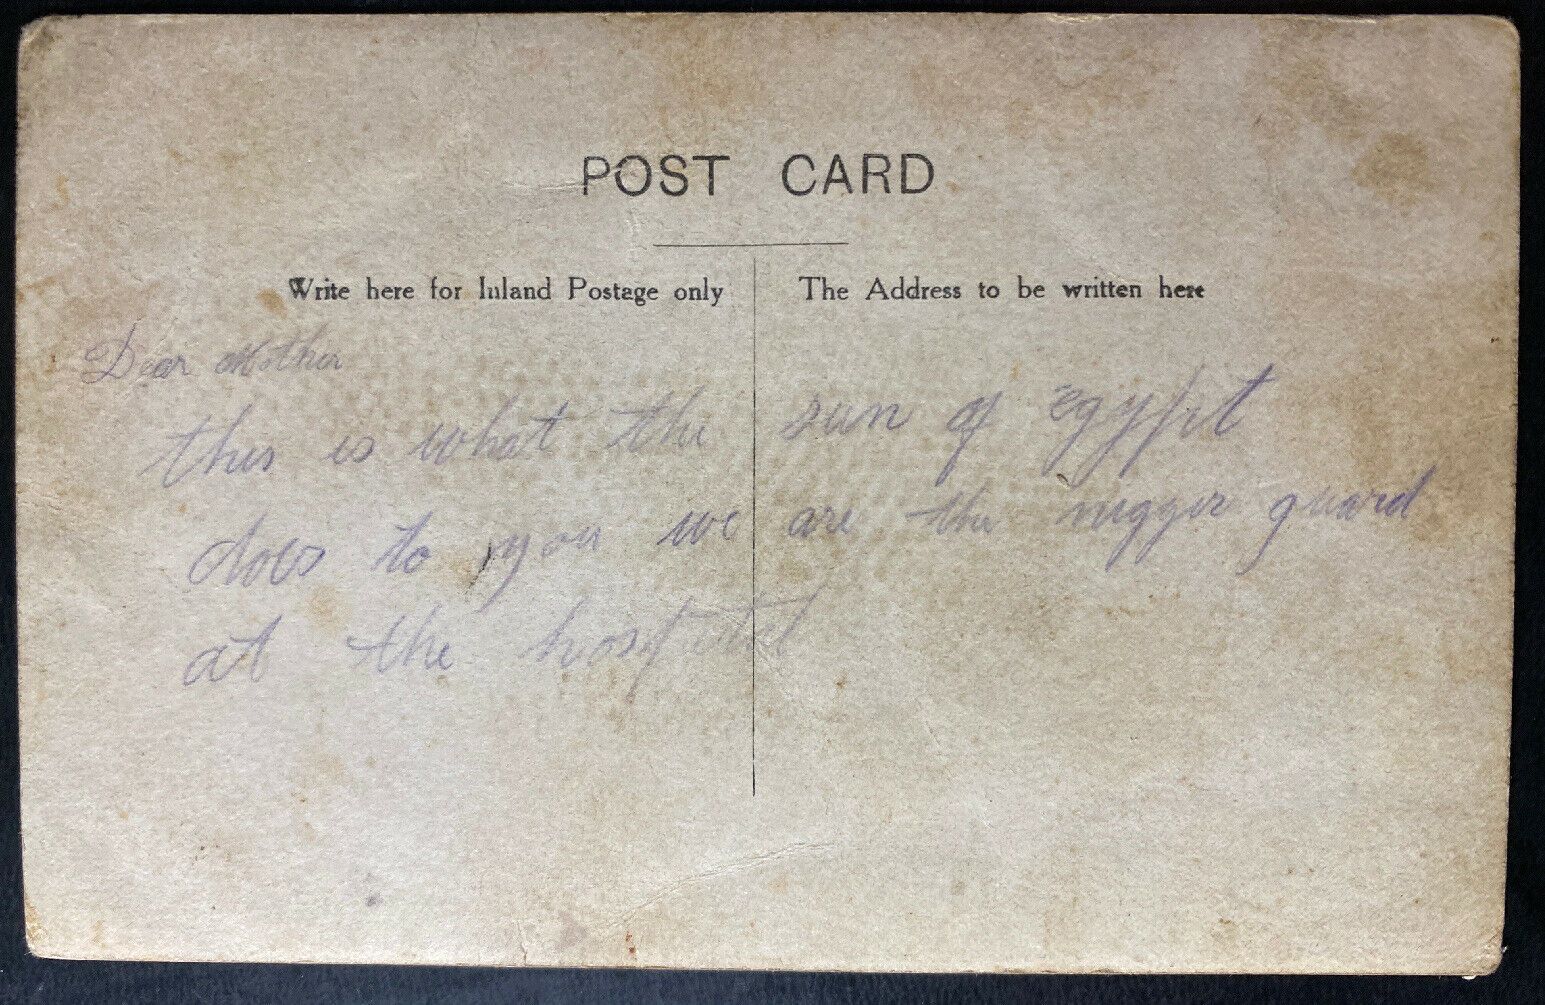 POST CARD
Write here for Inland Postage only
The Address to be written here
Dear Mother
this is what the sun of Egypt
does to you we are the nigger guard
at the hospital